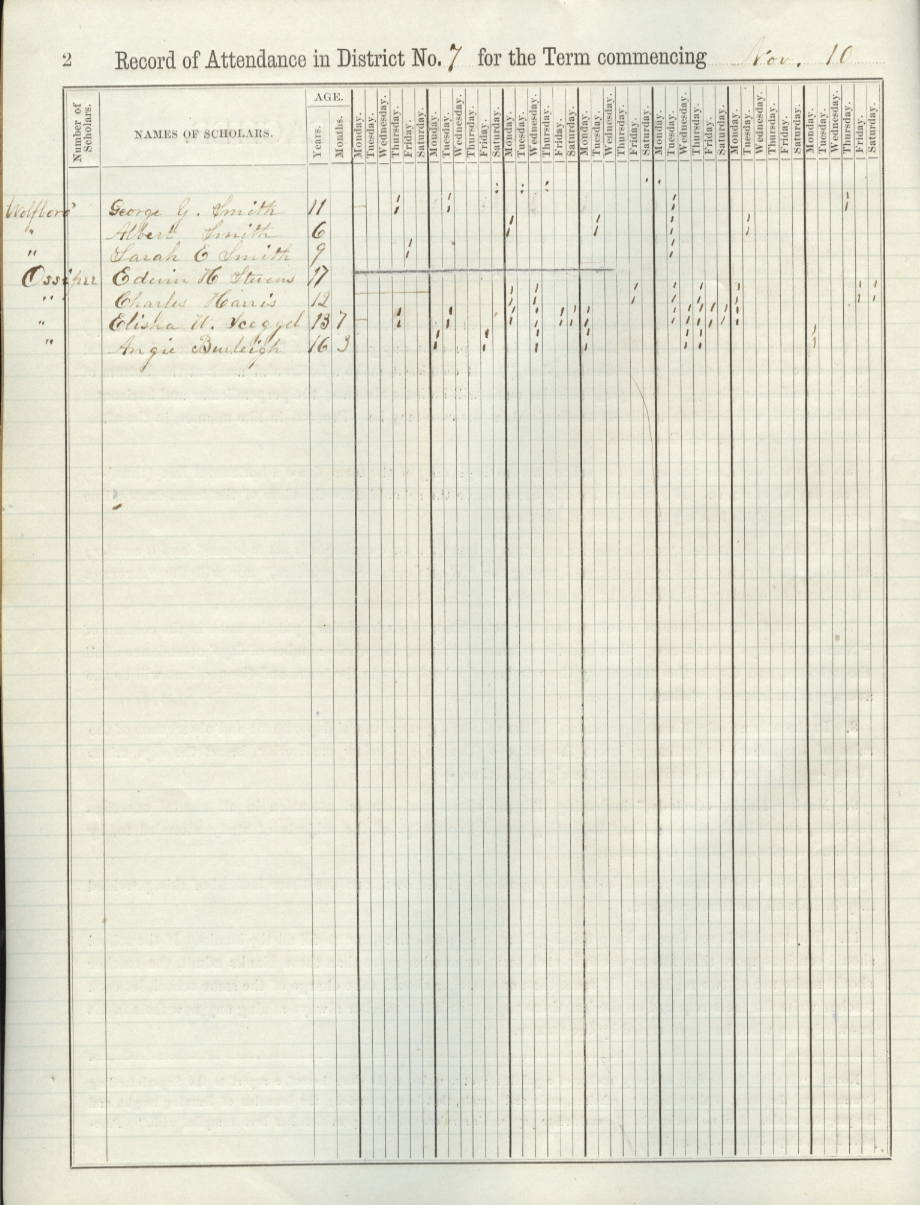 2 Record of Attendance in District No. 7 for the Term commencing Nov. 10
Number of Scholars.
NAMES OF SCHOLARS.
AGE.
Years. Months. Monday. Tuesday. Wednesday. Thursday. Friday. Saturday. Monday. Tuesday. Wednesday. Thursday. Friday. Saturday. Monday. Tuesday. Wednesday. Thursday. Friday. Saturday. Monday. Tuesday. Wednesday. Thursday. Friday. Saturday. Monday. Tuesday. Wednesday. Thursday. Friday. Saturday. Monday. Tuesday. Wednesday. Thursday. Friday. Saturday. Monday. Tuesday. Wednesday. Thursday. Friday. Saturday.
Wolfboro' George G. Smith 11
" Albert Smith 6
" Sarah E Smith 9
Ossipee Edwin H Stevens 17
" Charles Harris 12
" Elisha W. 13 7
" Angie Burleigh 16 3